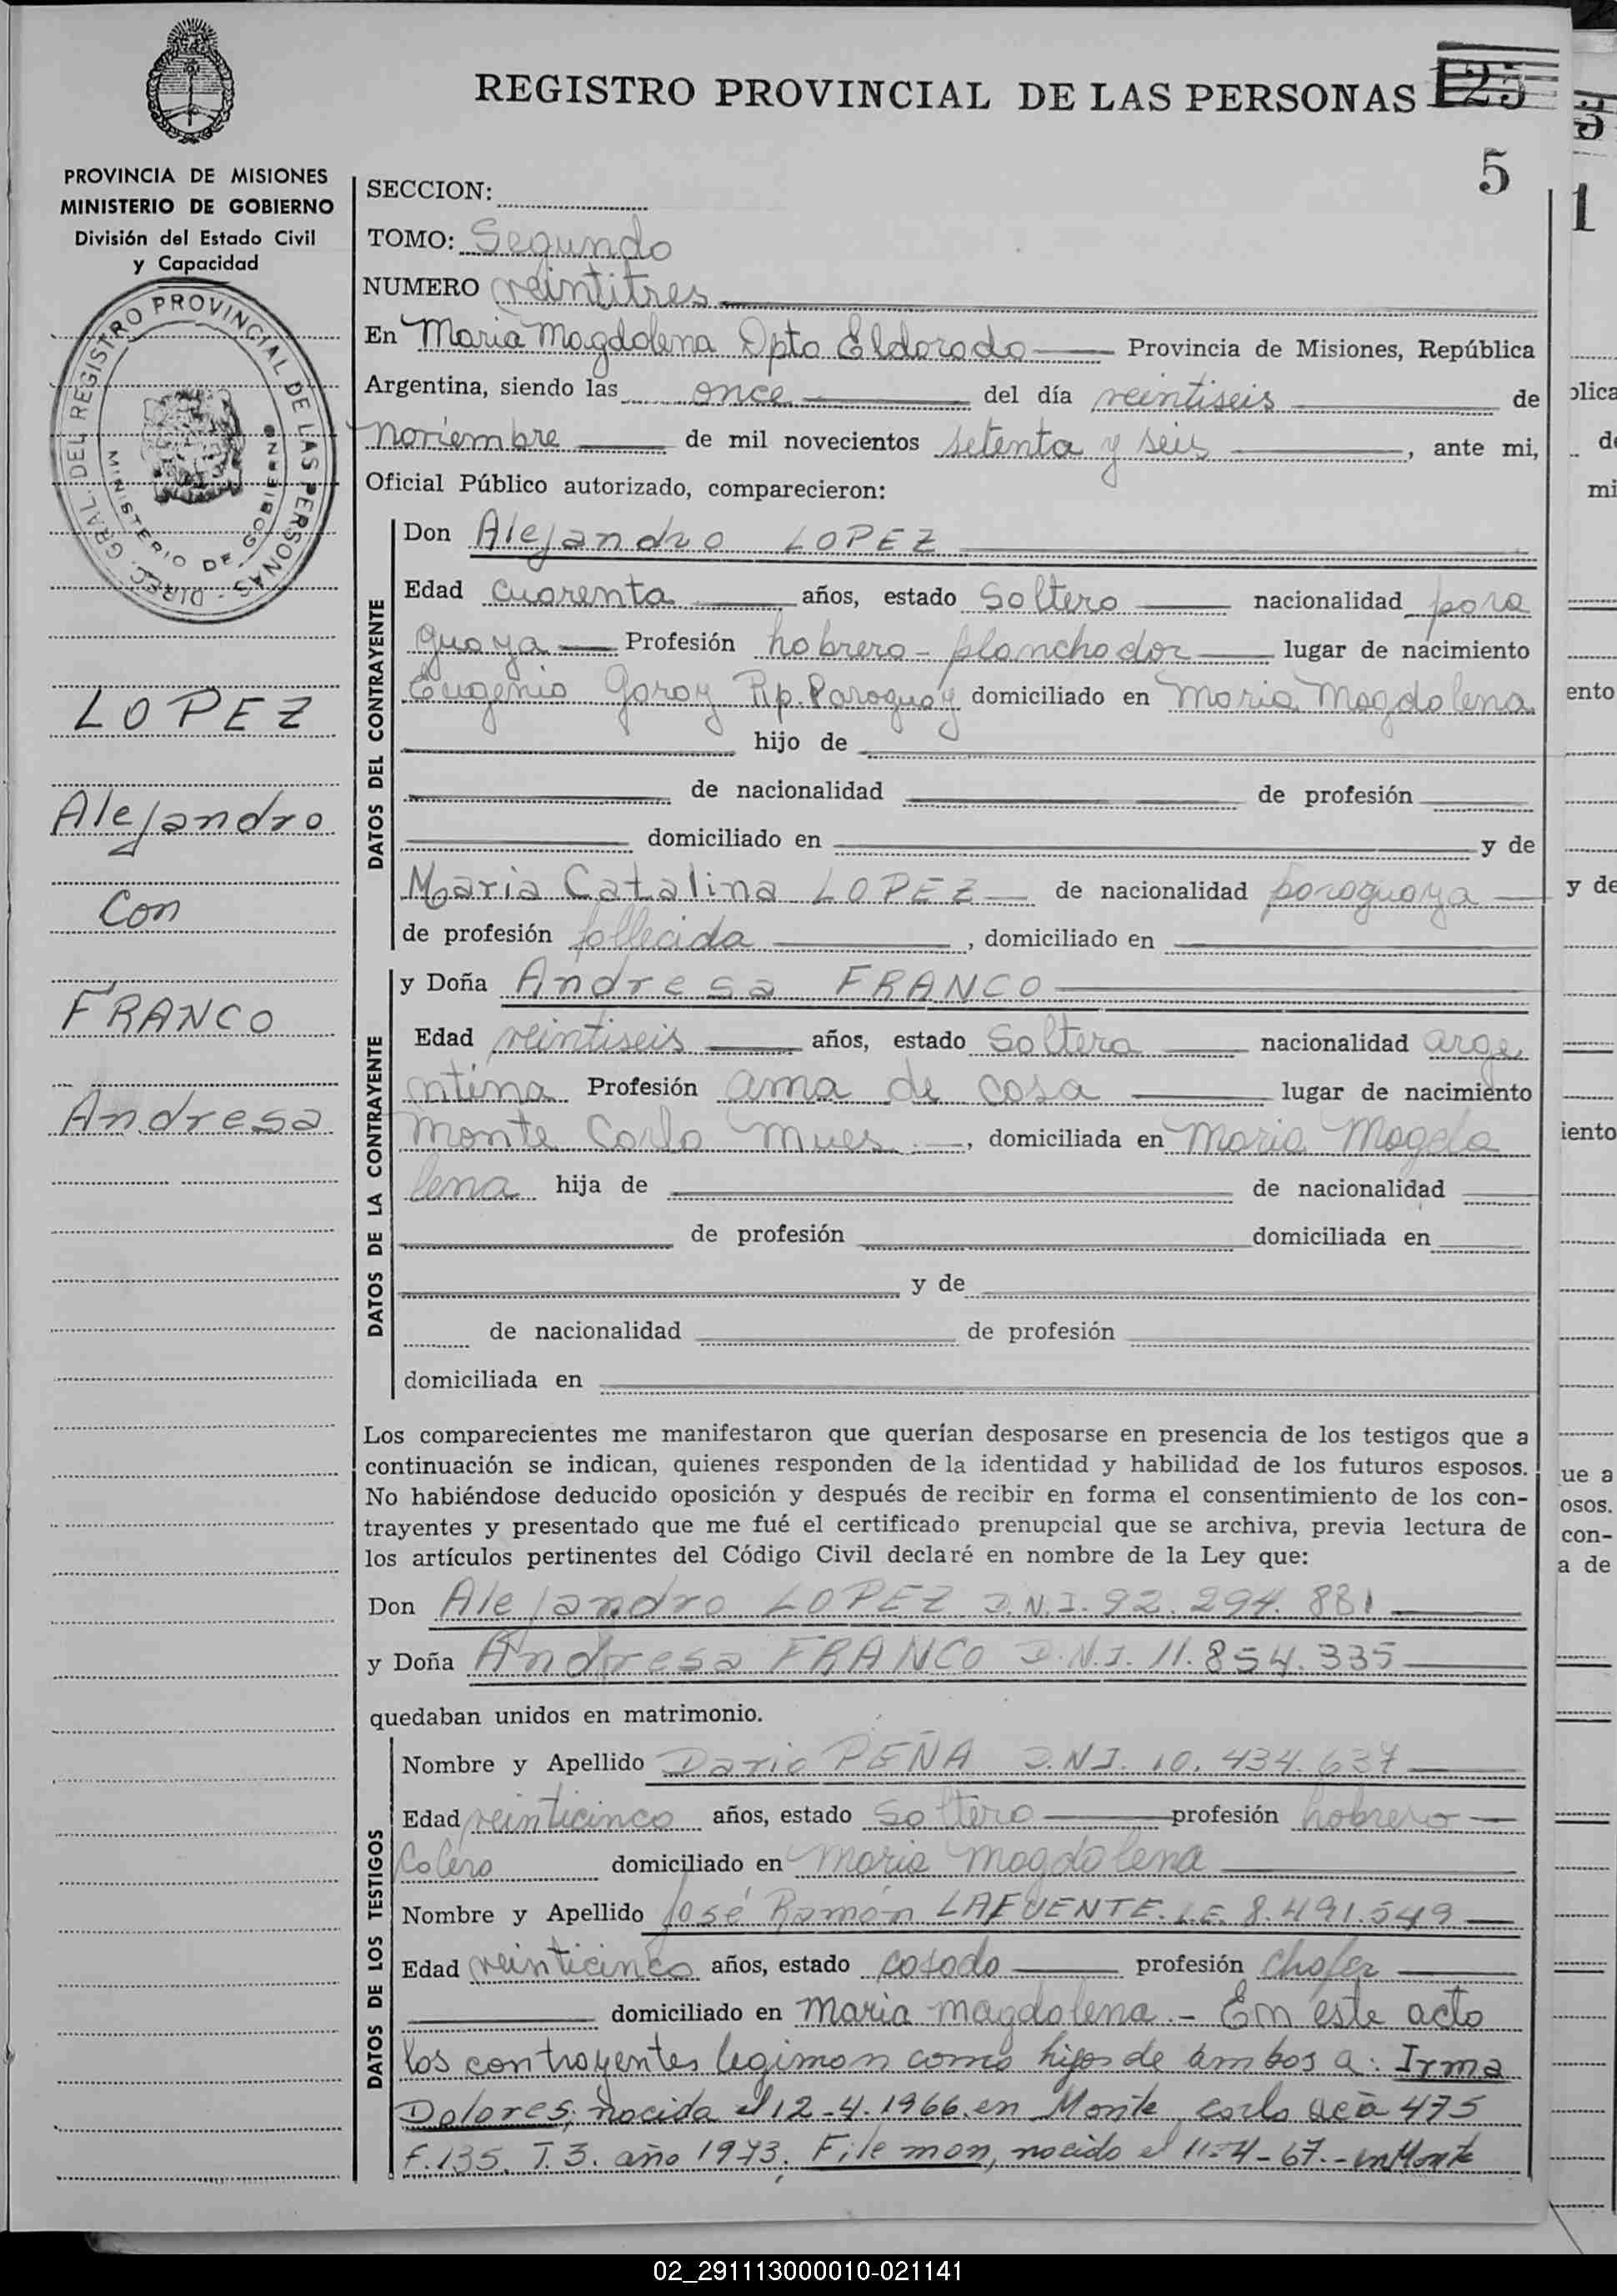 REGISTRO PROVINCIAL DE LAS PERSONAS 125
5
PROVINCIA DE MISIONES
MINISTERIO DE GOBIERNO
División del Estado Civil
y Capacidad
DIREC. GRAL. DEL REGISTRO PROVINCIAL DE LAS PERSONAS
MINISTERIO DE GOBIERNO
LOPEZ
Alejandro
Con
FRANCO
Andresa
SECCION:
TOMO: Segundo
NUMERO veintitres
En Maria Magdalena Dpto Eldorado Provincia de Misiones, República
Argentina, siendo las once del día veintiseis de
noviembre de mil novecientos setenta y seis, ante mi,
Oficial Público autorizado, comparecieron:
DATOS DEL CONTRAYENTE
Don Alejandro LOPEZ
Edad cuarenta años, estado Soltero nacionalidad para
guaya Profesión hobrero - planchador lugar de nacimiento
Eugenio Garay Rp. Paraguay domiciliado en Maria Magdalena
hijo de
de nacionalidad de profesión
domiciliado en y de
Maria Catalina LOPEZ de nacionalidad paraguaya
de profesión fallecida, domiciliado en
DATOS DE LA CONTRAYENTE
y Doña Andresa FRANCO
Edad veintiseis años, estado Soltera nacionalidad arge
ntina Profesión ama de casa lugar de nacimiento
Monte Carlo Mnes., domiciliada en Maria Magda
lena hija de de nacionalidad
de profesión domiciliada en
y de
de nacionalidad de profesión
domiciliada en
Los comparecientes me manifestaron que querían desposarse en presencia de los testigos que a
continuación se indican, quienes responden de la identidad y habilidad de los futuros esposos.
No habiéndose deducido oposición y después de recibir en forma el consentimiento de los con-
trayentes y presentado que me fué el certificado prenupcial que se archiva, previa lectura de
los artículos pertinentes del Código Civil declaré en nombre de la Ley que:
Don Alejandro LOPEZ D.N.I. 92.294.881
y Doña Andresa FRANCO D.N.I. 11.854.335
quedaban unidos en matrimonio.
DATOS DE LOS TESTIGOS
Nombre y Apellido Dario PEÑA D.N.I. 10.434.637
Edad veinticinco años, estado Soltero profesión hobrero
Colero domiciliado en Maria Magdalena
Nombre y Apellido José Ramón LAFUENTE. L.E. 8.491.549
Edad veinticinco años, estado casado profesión chofer
domiciliado en Maria Magdalena.- En este acto
los contrayentes legiman como hijos de ambos a: Irma
Dolores, nacida el 12-4-1966 en Monte Carlo 475
f.135. T.3. año 1973. Filemon, nacido el 11-4-67.- en Monte
02_291113000010-021141